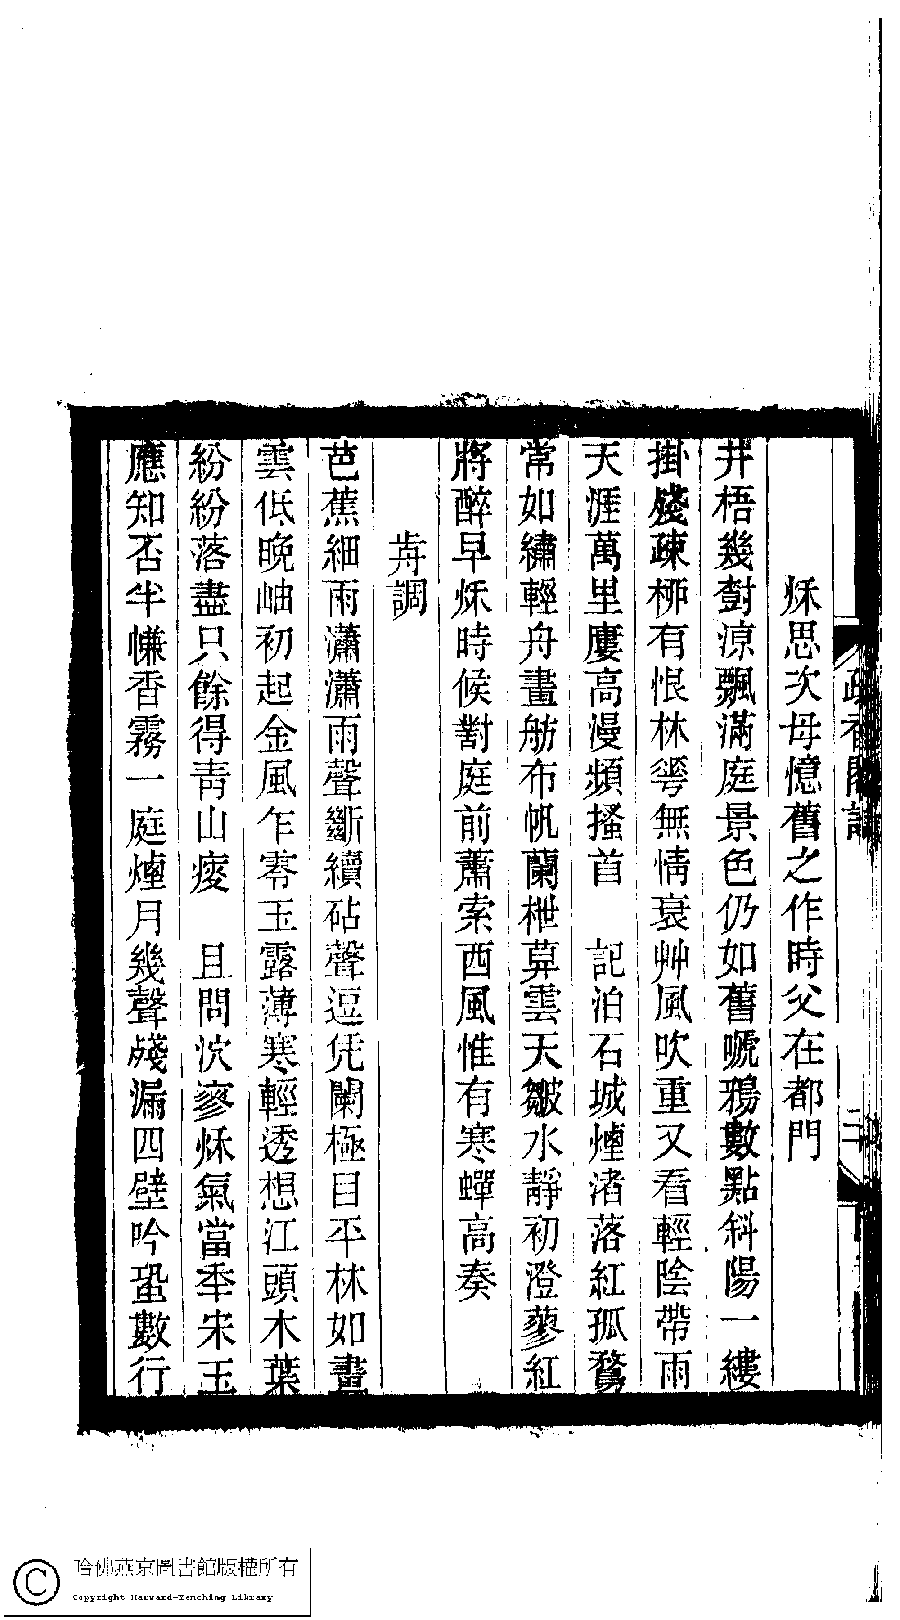 秌思次母憶舊之作時父在都門
井梧幾樹涼飄滿庭景色仍如舊嗁鴉數點斜陽一縷
掛殘疎桺有恨林雩無情衰艸風吹重又看輕陰帶雨
天涯萬里廔高漫頻搔首　記泊石城煙渚落紅孤鶩
常如繡輕舟畫舫布帆蘭枻莫雲天皺水靜初澄蓼紅
將醉早秌時候對庭前蕭索西風惟有寒蟬高奏
歬調
芭蕉細雨瀟瀟雨聲斷續砧聲逗凭闌極目平林如畫
雲低晚岫初起金風乍零玉露薄寒輕透想江頭木葉
紛紛落盡只餘得青山瘦　且問泬寥秌氣當秊宋玉
應知否半慊香霧一庭煙月幾聲殘漏四壁吟蛩數行
疎香閣詞
二
哈佛燕京圖書館版權所有
Copyright Harvard-Yenching Library